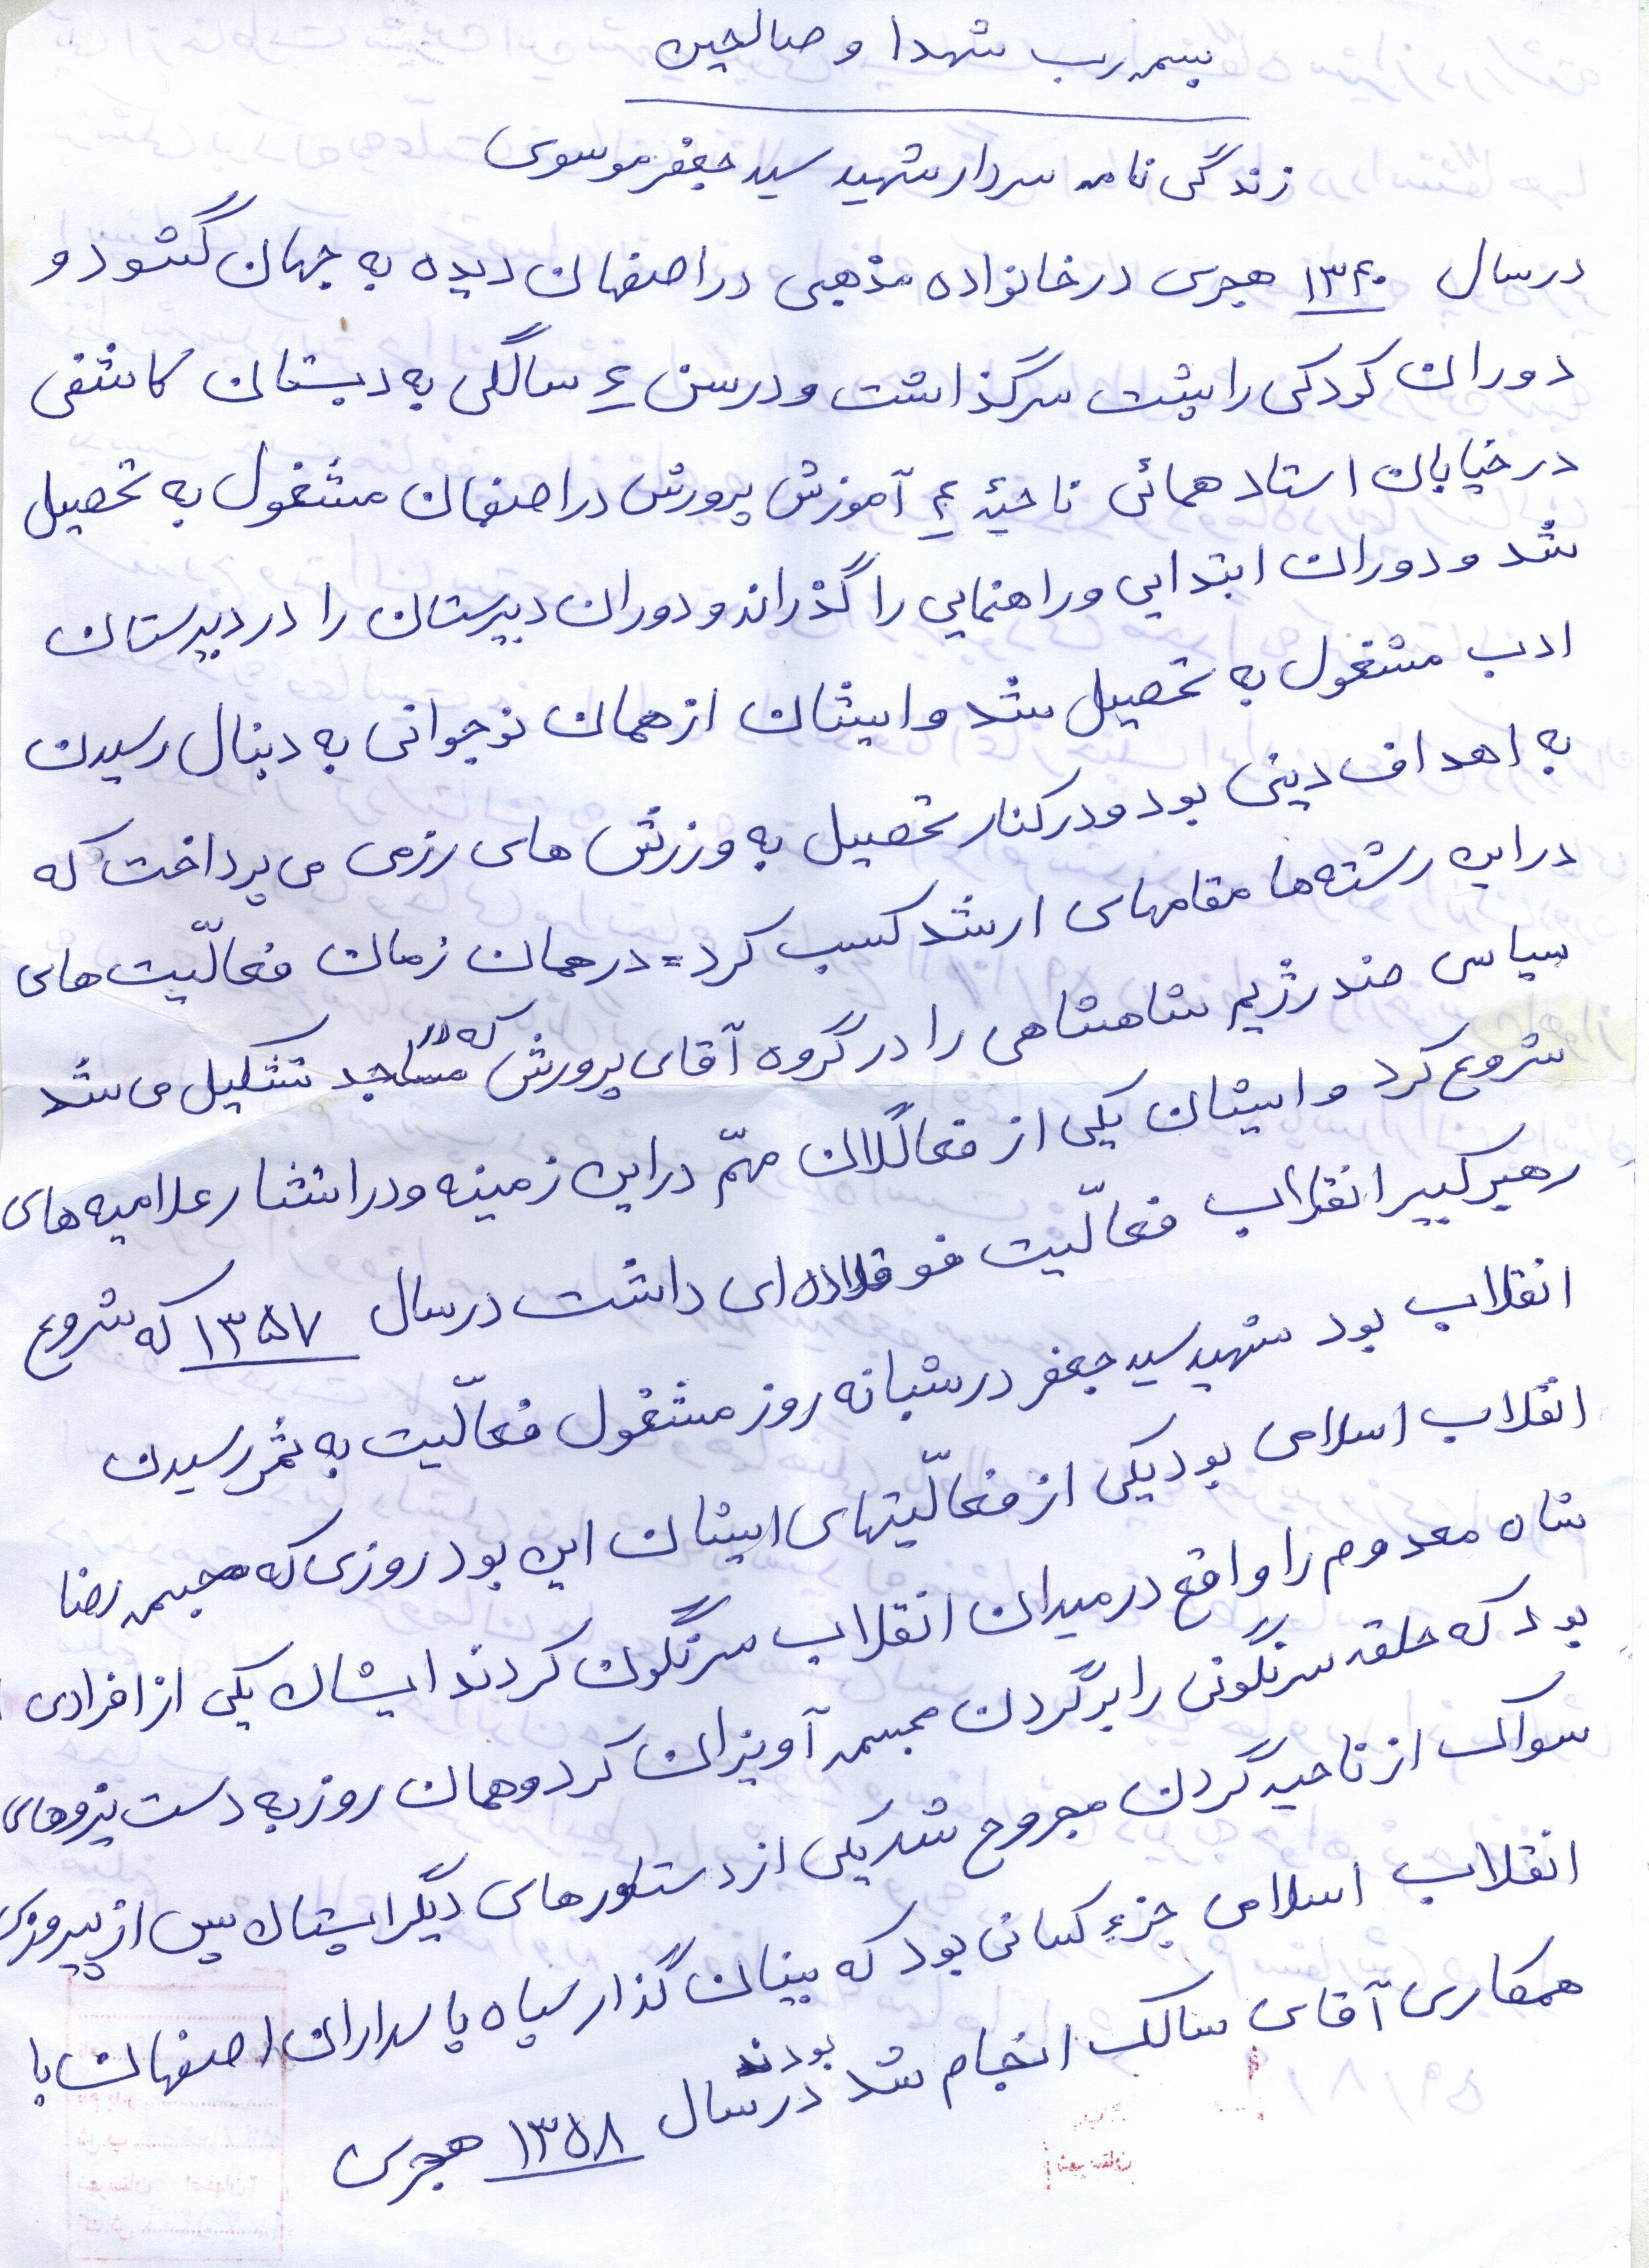 بسمه رب شهدا و صالحین
زندگی نامه سردار شهید سید جعفر موسوی
در سال ۱۳۴۰ هجری در خانواده مذهبی در اصفهان دیده به جهان گشود و
دوران کودکی را پشت سر گذاشت و در سن ۶ سالگی به دبستان کاشفی
در خیابان استاد همائی ناحیهٔ ۴ آموزش پرورش در اصفهان مشغول به تحصیل
شد و دوران ابتدایی و راهنمایی را گذراند و دوران دبیرستان را در دبیرستان
ادب مشغول به تحصیل شد و ایشان از همان نوجوانی به دنبال رسیدن
به اهداف دینی بود و در کنار تحصیل به ورزش های رزمی می پرداخت که
در این رشته ها مقامهای ارشد کسب کرد = در همان زمان فعالّیت های
سیاسی ضد رژیم شاهنشاهی را در گروه آقای پرورش که در مساجد تشکیل می شد
شروع کرد و ایشان یکی از فعالان مهمّ در این زمینه و در انتشار علامیه های
رهبر کبیر انقلاب فعالّیت فوقلاده ای داشت در سال ۱۳۵۷ که شروع
انقلاب بود شهید سید جعفر در شبانه روز مشغول فعالّیت به ثمر رسیدن
انقلاب اسلامی بود یکی از فعالّیتهای ایشان این بود روزی که مجسمه رضا
شاه معدوم را واقع در میدان انقلاب سرنگون کردند ایشان یکی از افرادی
بود که حلقه سرنگونی را بر گردن مجسمه آویزان کرد و همان روز به دست نیروهای
سواک از ناحیه گردن مجروح شد یکی از دستاورهای دیگر ایشان پس از پیروزی
انقلاب اسلامی جزء کسانی بود که بنیان گذار سپاه پاسداران اصفهان با
همکاری آقای سالک انجام شد بودند در سال ۱۳۵۸ هجری